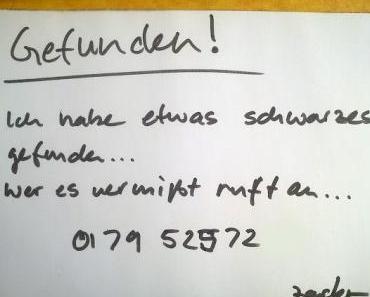 Gefunden!
Ich habe etwas schwarzes
gefunden...
wer es vermißt ruft an...
0179 52572